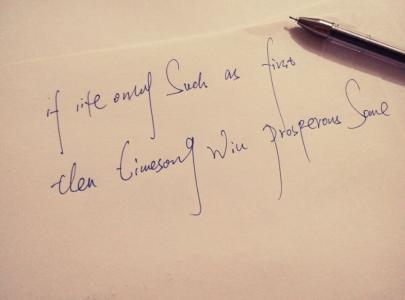 if life only Such as first
then timesong Win prosperous Same